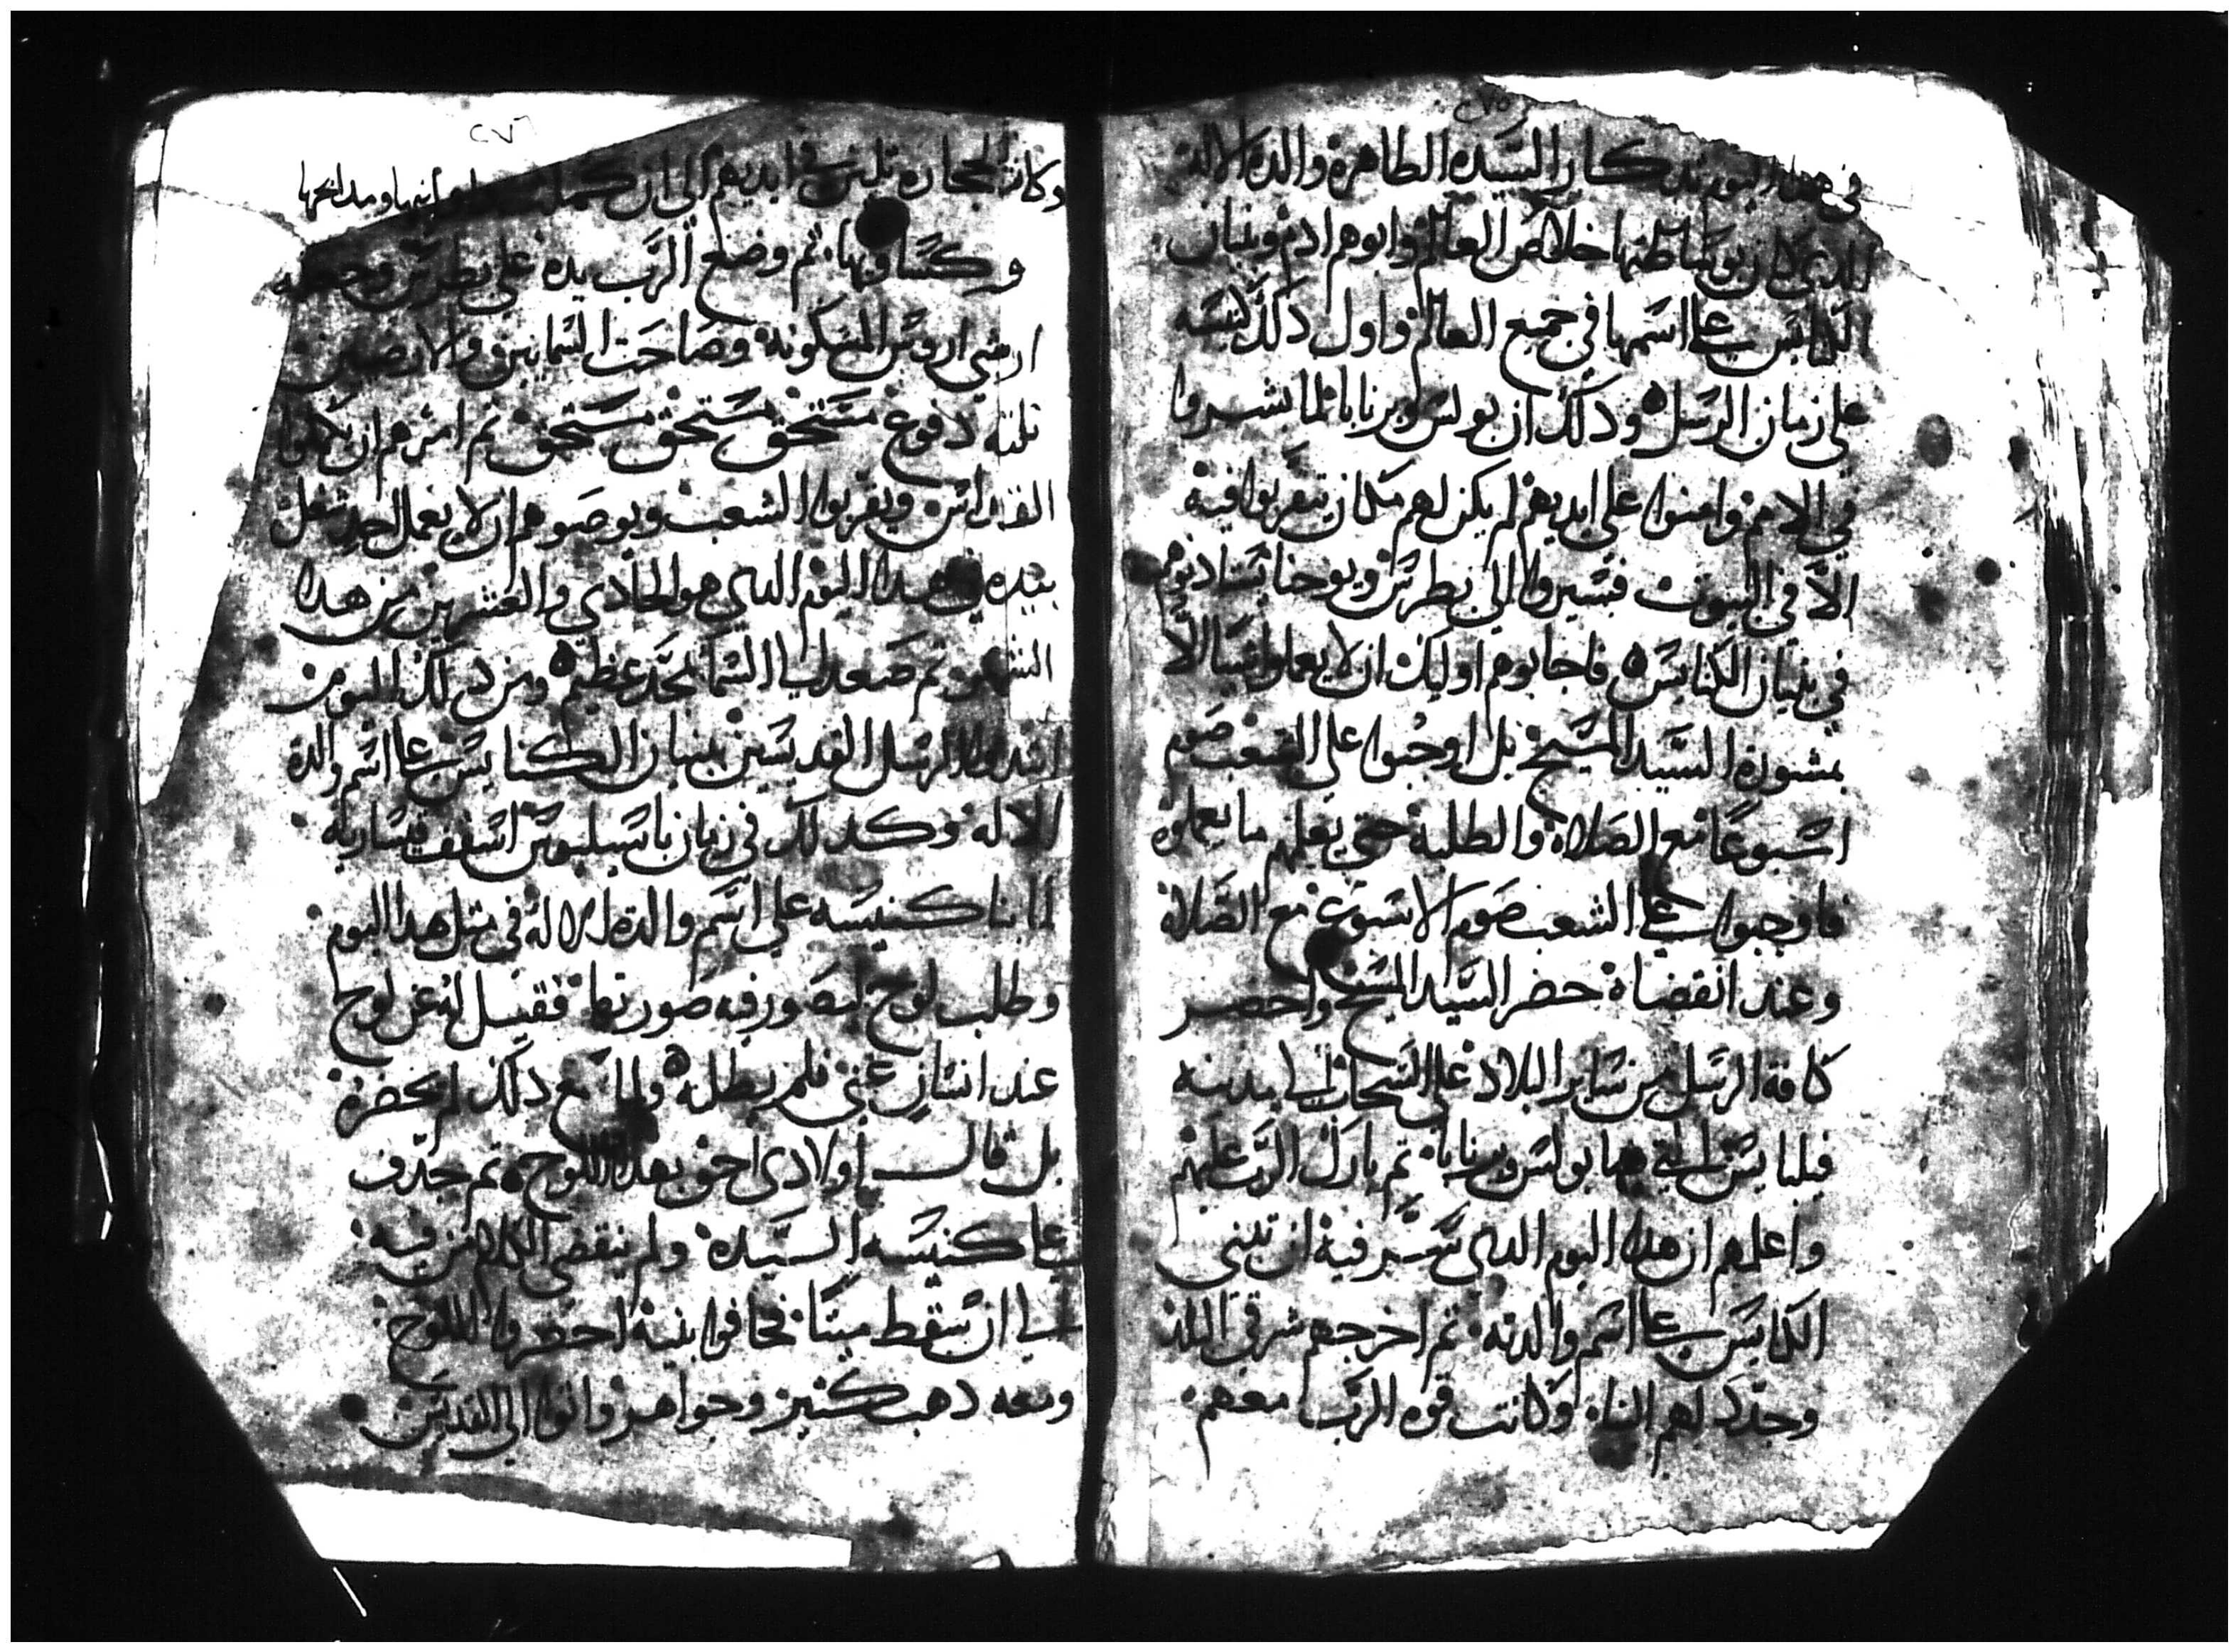 ٢٧٥
في هدا اليوم تدكار السيده الطاهرة والدة الاله
الدي كان بوساطتها خلاص العالم وابوهم ادم وبنيان
الكنايس على اسمها في جميع العالم واول دلك كنيسه
على زمان الرسل ودلك ان بولس وبرنابا لما بشروا
في الامم وامنوا على ايديهم لم يكن لهم مكان يتقربوا فيه
الا في البيوت فسيروا الى بطرس ويوحنا يشادنوهم
في بنيان الكنايس فاجابوهم اوليك ان لا يعملوا شيا الا
بمشورة السيد المسيح بل اوجبوا على الشعب صوم
اسبوعا مع الصلاة والطلبة حتى يعلمهم ما يعملوه
فاوجبوا على الشعب صوم الاسبوع مع الصلاة
وعند انقضاه حضر السيد المسيح واحضر
كافة الرسل من ساير البلاد على السحاب الى مدينه
فيلبايس التي هما بولس وبرنابا تم بارك الرب عليهم
واعلمهم ان هدا اليوم الدى فيه ان تبنى
الكنايس على اسم والدته تم اخرجهم شرقي البلد
وحدد لهم البناء وكانت قوة الرب معهم
٢٧٦
وكانت الحجاره تلين في ايديهم الى ان كملت
وكساويها تم وضع الرب يده على بطرس وجعله
المسكونة وصاحت السمايين والارضيين
تلتة دفوع مستحق مستحق مستحق تم امرهم ان يكملوا
القداس ويقربوا الشعب ويوصوهم ان لا يعمل احد شغل
بيده في هدا اليوم الدي هو الحادي والعشرين من هدا
الشهر تم صعد الى السما بمجد عظيم ومن دلك اليوم
ابتدوا الرسل القديسين ببنيان الكنايس على اسم والدة
الاله وكدلك في زمان باسيليوس اسقف قيساريه
لما بنا كنيسه على اسم والدة الاله في متل هدا اليوم
وطلب لوح ليصور فيه صورتها فقيل له عن لوح
عند انسان غني فلم يطلبه ولما سمع دلك لم يحضره
بل قال اولادى احق بهدا اللوح تم جدف
على كنيسه السيده ولم ينقضى الكلام من فيه
الى ان سقط ميتا فخافوا بنيه احضروا اللوح
ومعه دهب كتير وجواهر واتوا الى القديس